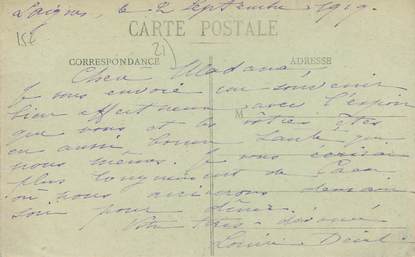 Loignes, le 2 Septembre 1919.
15F
21)
CARTE POSTALE
CORRESPONDANCE
ADRESSE
Chère Madame,
Je vous envoie un souvenir
bien affectueux avec l'espoir
M
que vous et les vôtres êtes
en aussi bonne santé que
nous mêmes. Je vous écrirai
plus longuement de
où nous arriverons demain
soir pour dîner.
Votre très dévouée
Louise